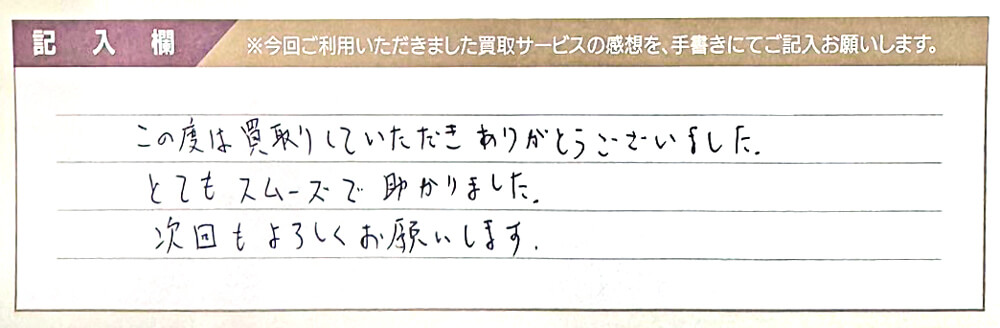 記入欄 ※今回ご利用いただきました買取サービスの感想を、手書きにてご記入お願いします。
この度は買取りしていただきありがとうございました.
とてもスムーズで助かりました.
次回もよろしくお願いします.